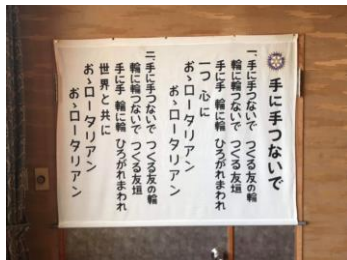 手に手つないで
一、手に手つないで つくる友の輪
輪に輪つないで つくる友垣
手に手 輪に輪 ひろがれまわれ
一つ心に
おゝロータリアン
おゝロータリアン
二、手に手つないで つくる友の輪
輪に輪つないで つくる友垣
手に手 輪に輪 ひろがれまわれ
世界と共に
おゝロータリアン
おゝロータリアン